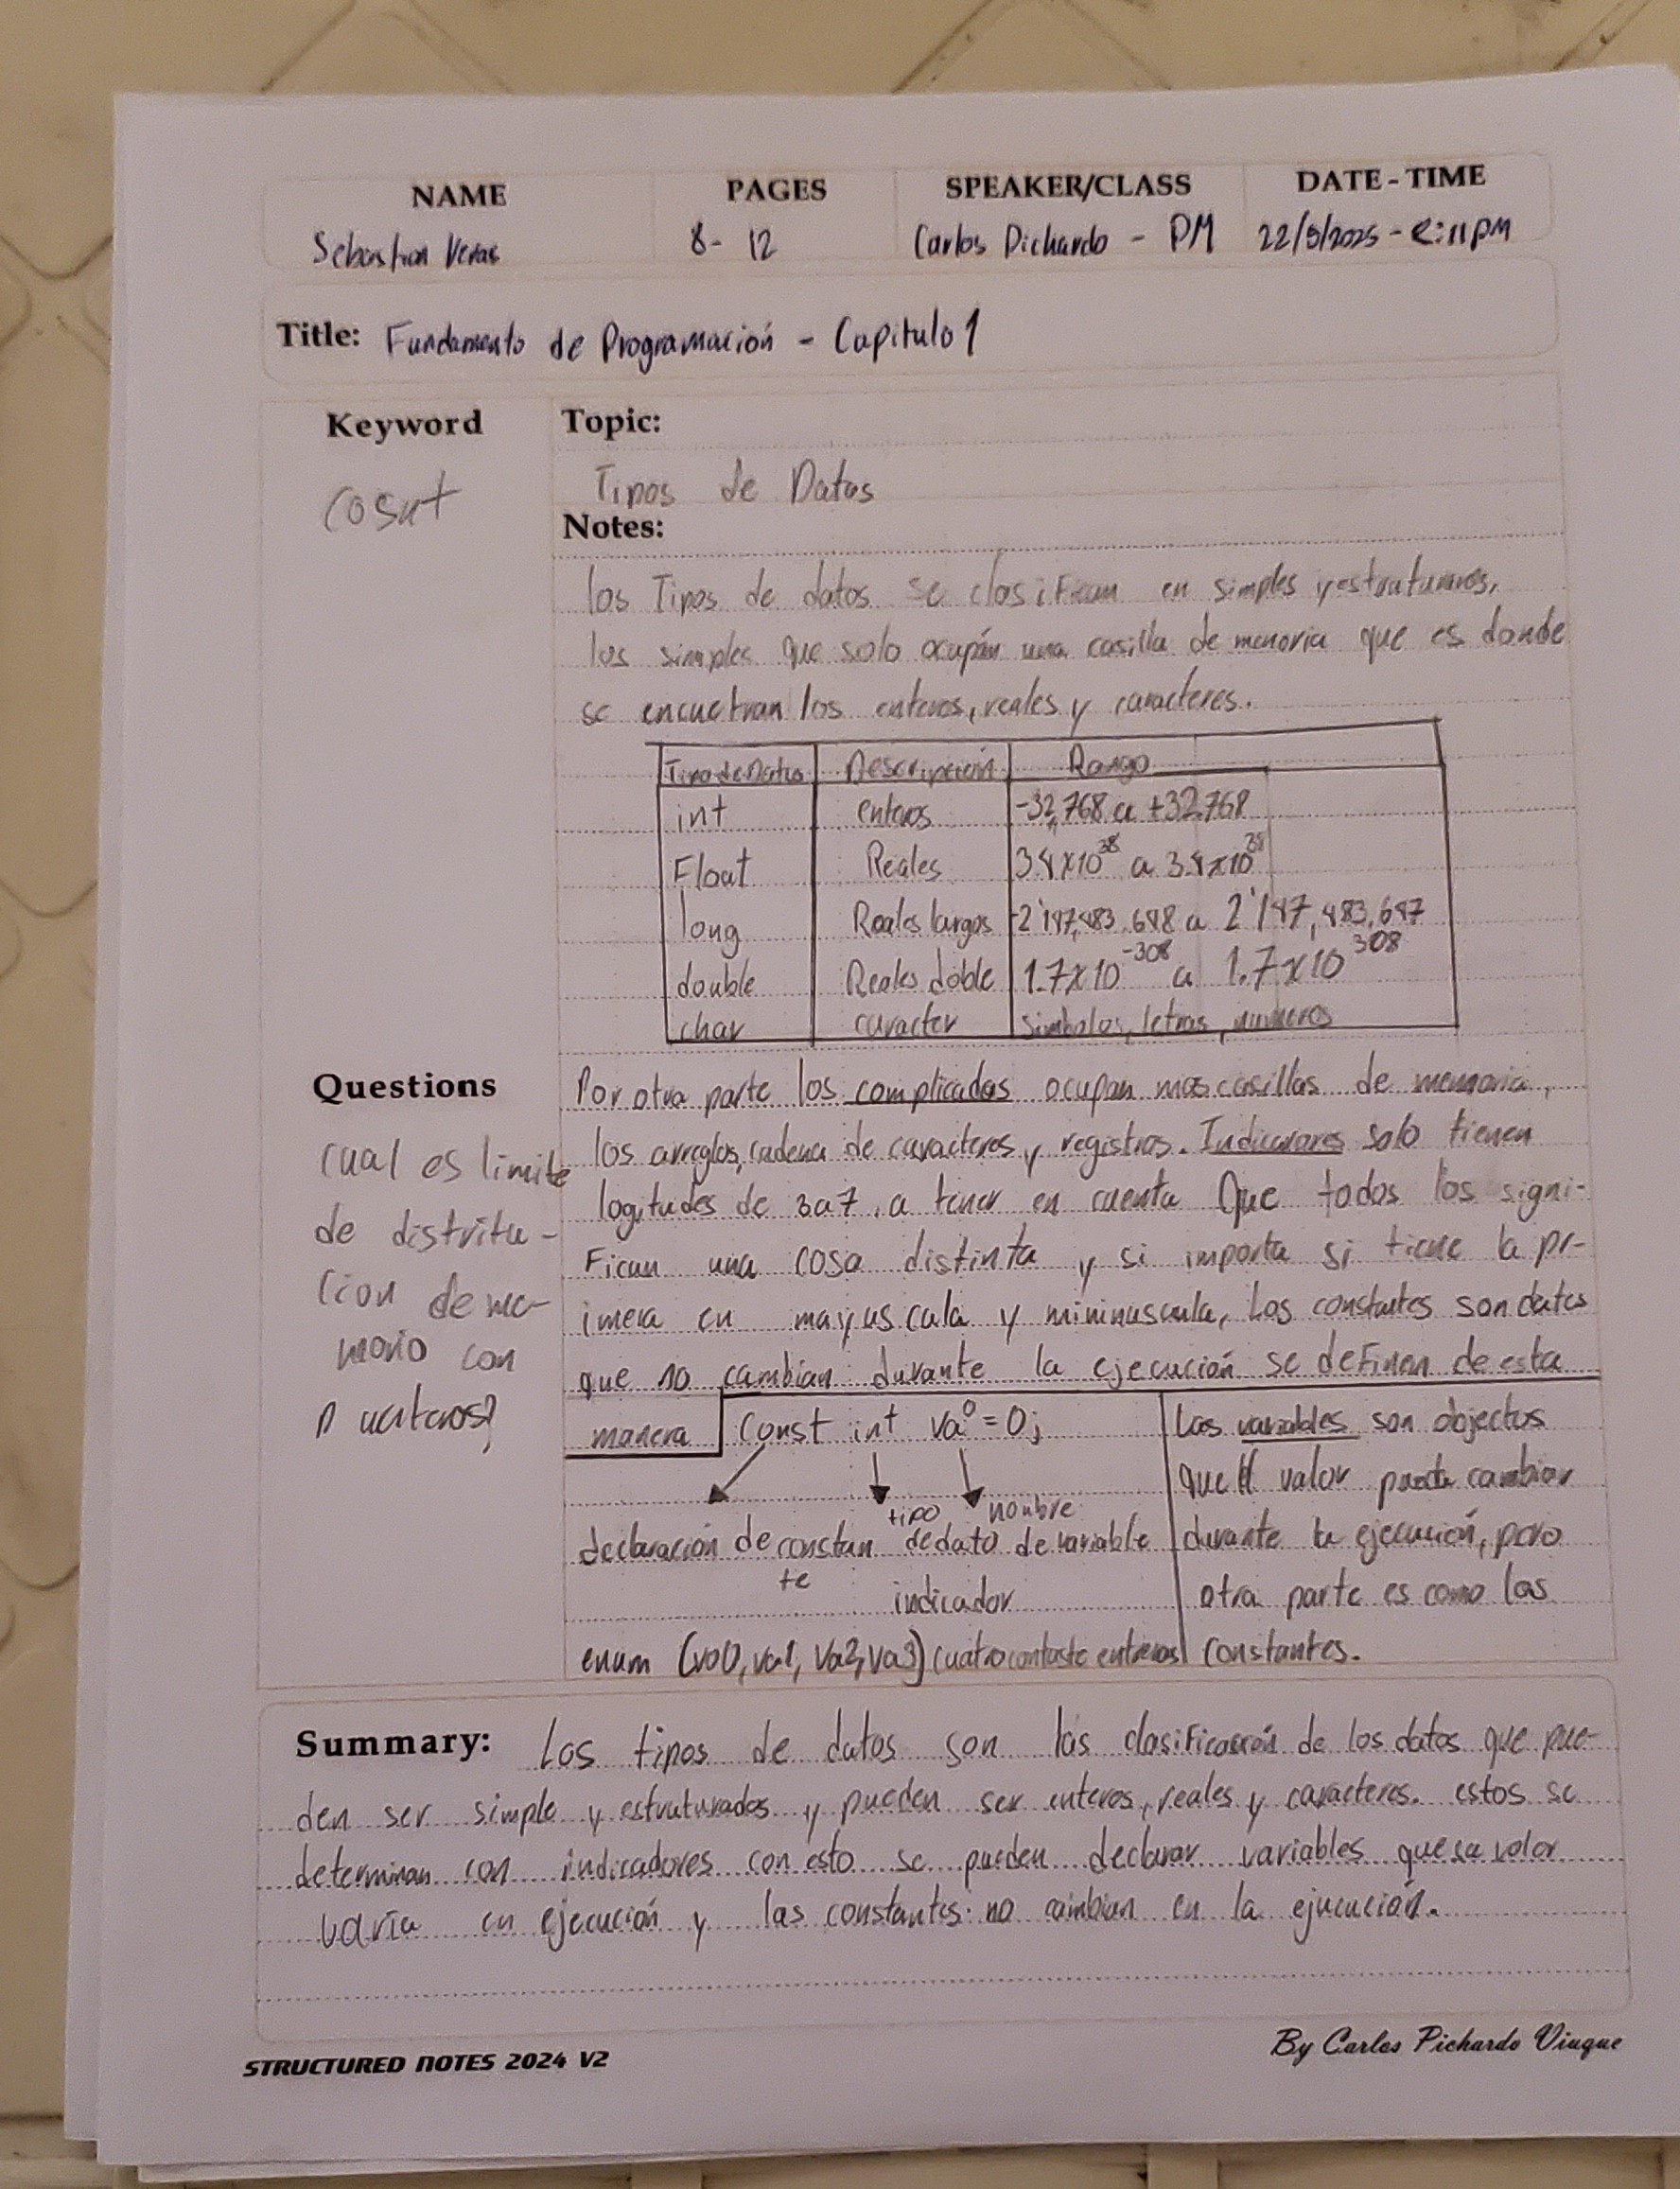 NAME PAGES SPEAKER/CLASS DATE-TIME
Sebastian Veras 8- 12 Carlos Pichardo - PM 22/5/2025 - 2:11PM
Title: Fundamento de Programación - Capitulo 1
Keyword Topic:
cosnt Tipos de Datos
Notes:
los Tipos de datos se clasifican en simples y
los simples que solo ocupán una casilla de memoria que es donde
se encuetran los enteros, reales y caracteres.
Tipo de Datos Descripción Rango
int enteros -32,768 a +32.768
Float Reales 3.4x10^38 a 3.4x10^38
long Reales largos -2'147,483.648 a 2'147,483,647
double Reales doble 1.7x10^-308 a 1.7x10^308
char caracter simbolos, letras, numeros
Questions
Por otra parte los complicadas ocupan mas casillas de memoria,
los arreglos, cadena de caracteres y registros. Indicarores solo tienen
logitudes de 3 a 7, a tener en cuenta Que todos los signi-
Fican una cosa distinta y si importa si tiene la pr-
imera en mayuscula y mininuscula, Los constantes son datos
que no cambian durante la ejecución se definen de esta
manera const int va0 = 0;
tipo nombre
declaración de constan de dato de variable
te
indicador
enum (va0, va1, va2, va3) cuatro
Las variables son objectos
que valor puede cambiar
durante la ejecución, pero
otra parte es como las
constantes.
cual es limite
de distritu-
cion de me-
morio con
Summary: Los tipos de datos son las clasificación de los datos que pue-
den ser simple y estruturados y pueden ser enteros, reales y caracteres. estos se
determinan con indicadores con esto se pueden declarar variables que su valor
varia en ejecución y las constantes no cambian en la ejecución.
STRUCTURED NOTES 2024 V2
By Carlos Pichardo Viuque